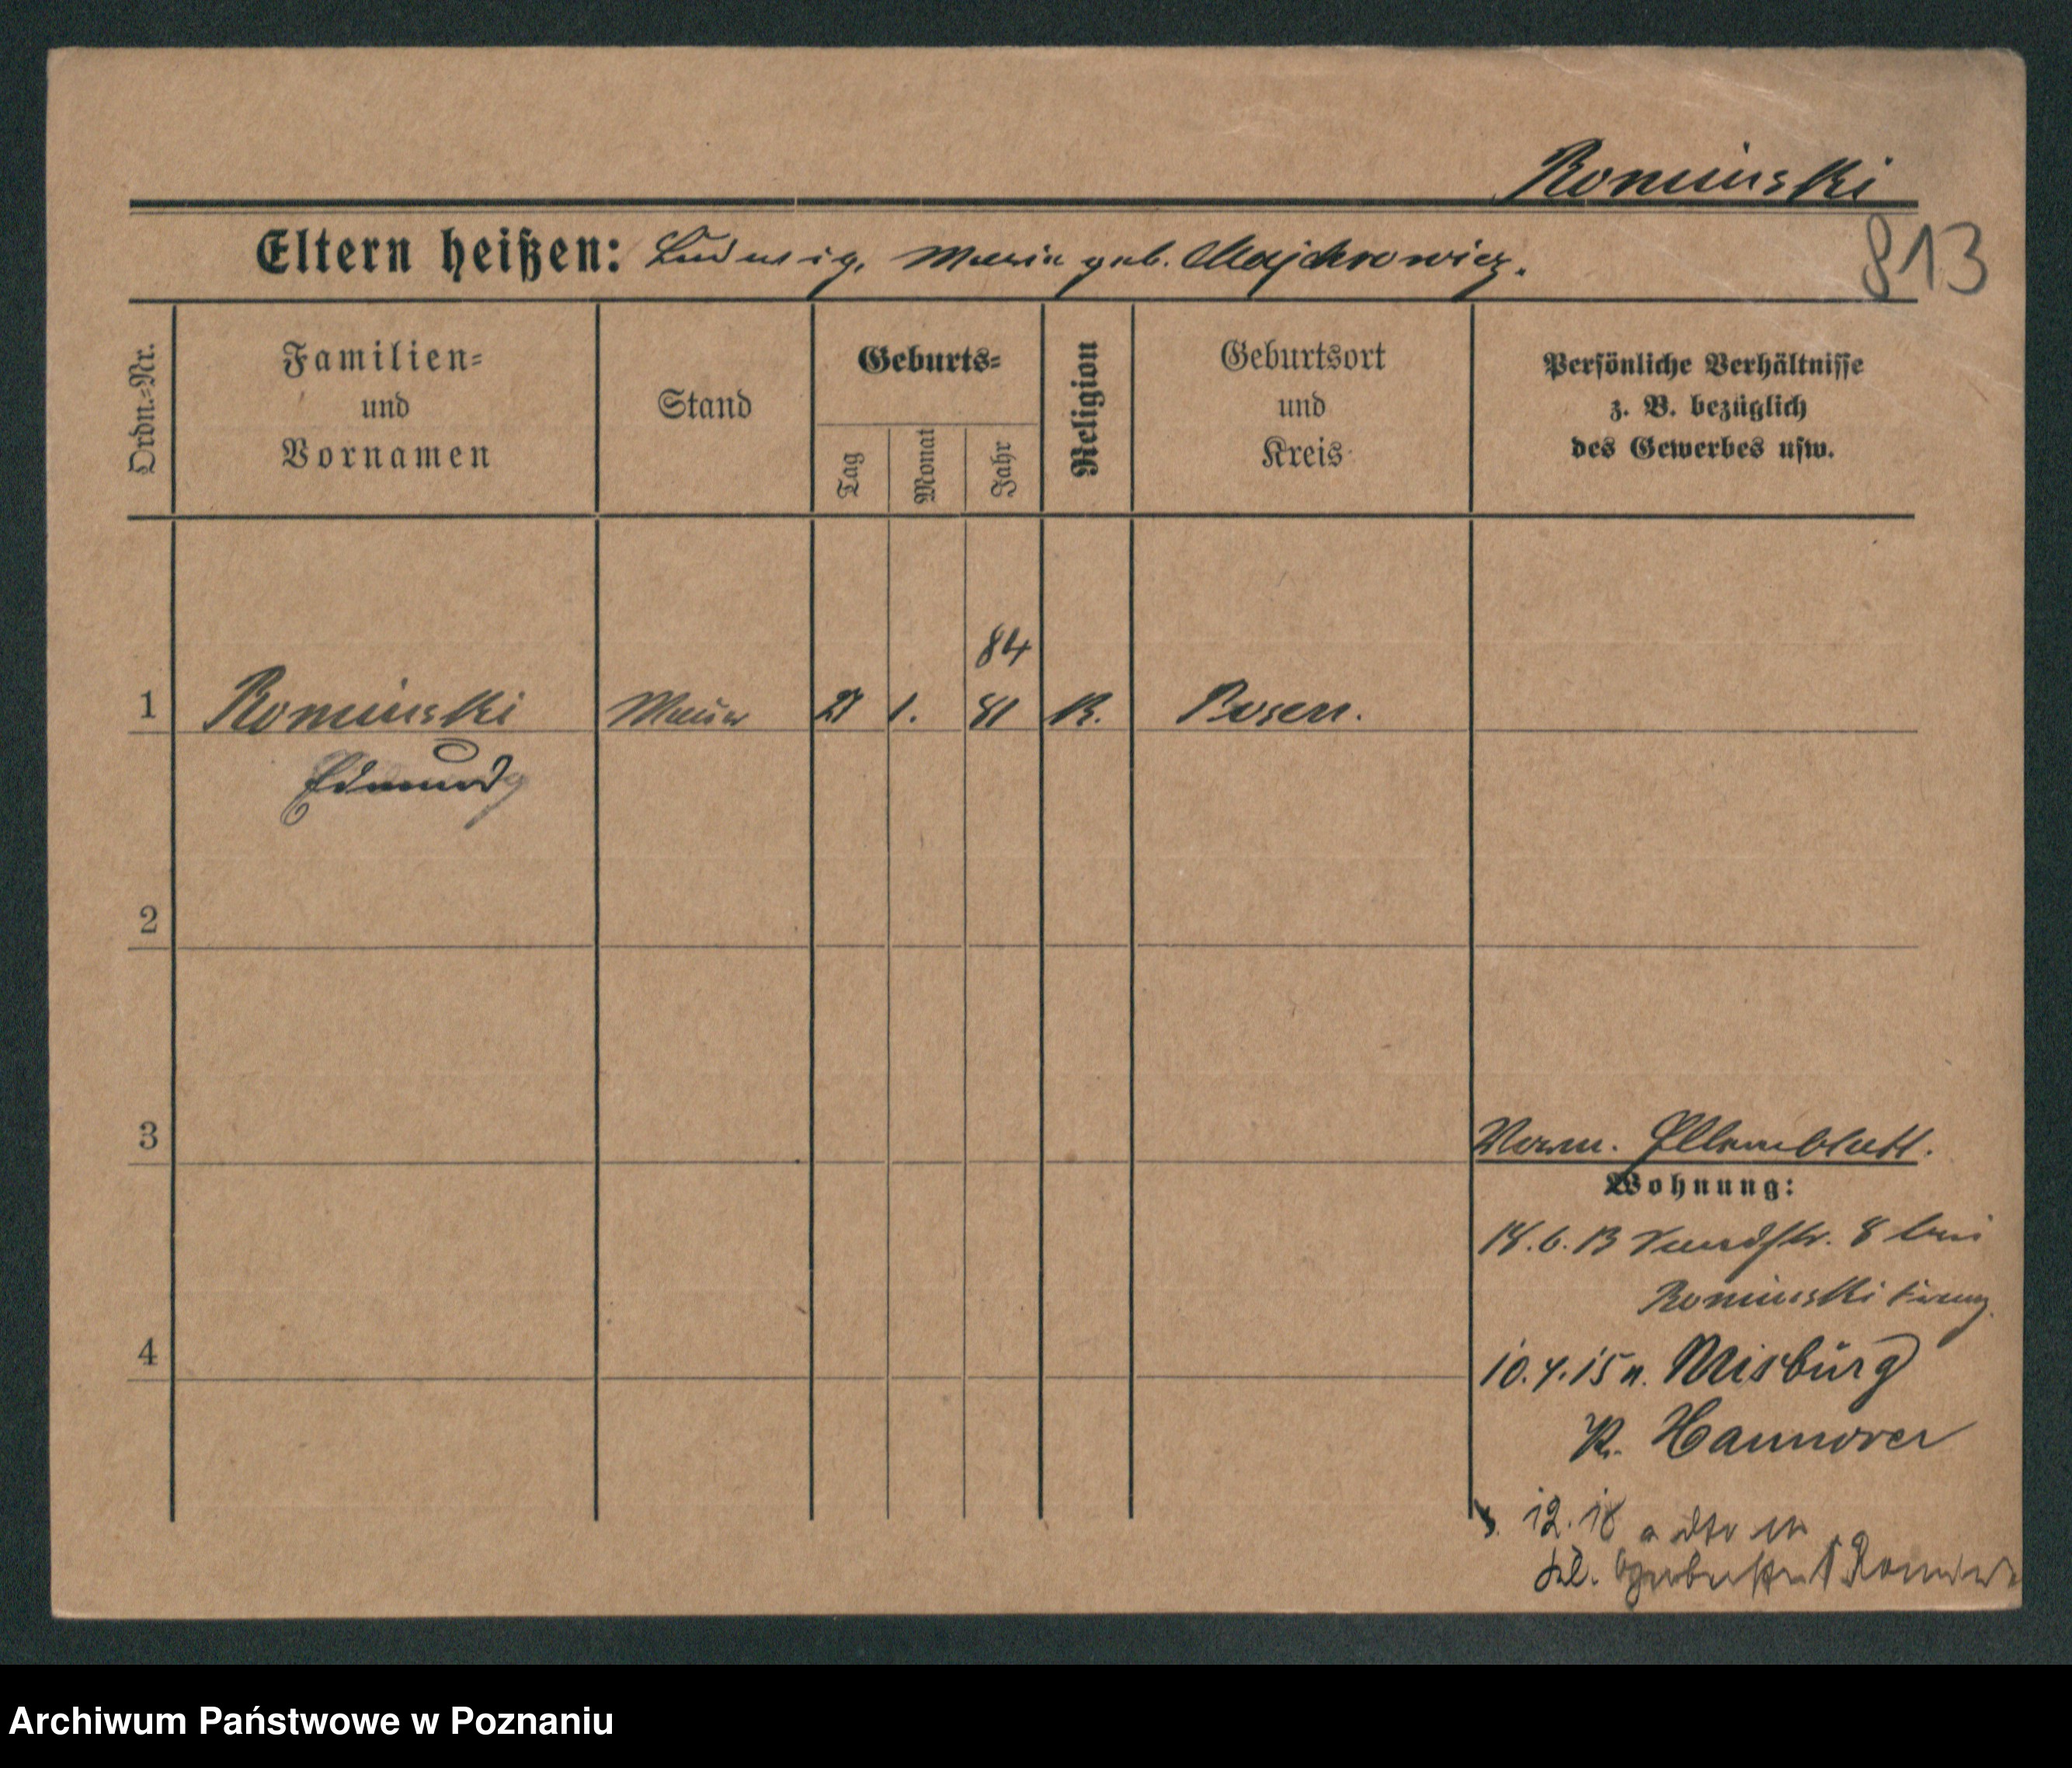 Rominski
Eltern heißen: Ludwig, Maria geb. Majchrowicz.
813
Ordn.=Nr.
Familien=
und
Vornamen
Stand
Geburts=
Tag
Monat
Jahr
Religion
Geburtsort
und
Kreis
Persönliche Verhältnisse
z. B. bezüglich
des Gewerbes usw.
84
1 Rominski Maurer 27 1. 81 K. Posen.
Edmund
2
3
Vorm. Elternblatt.
Wohnung:
18.6.13 8 bei
Rominski
4
10.4.15 n. Misburg
K. Hannover
12.18
Archiwum Państwowe w Poznaniu